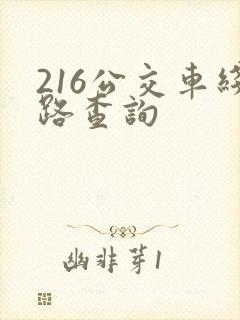 216公交車綫
路查詢
幽非芽1